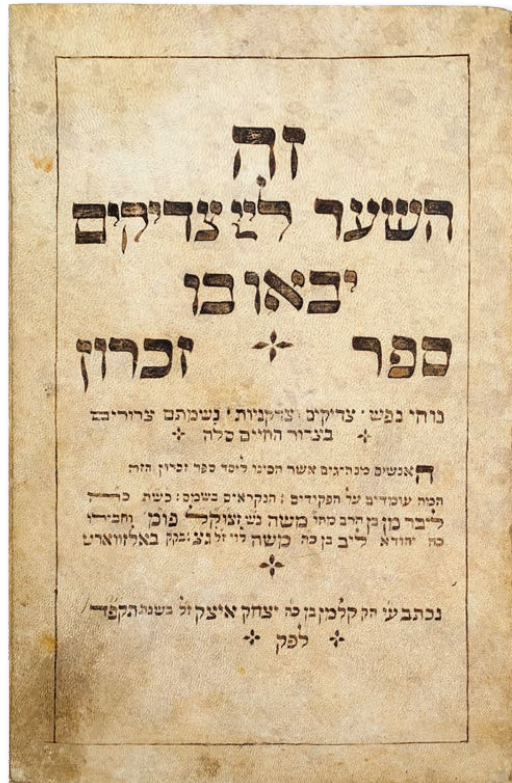 זה
השער ליי צדיקים
יבאו בו
ספר זכרון
נוחי נפש צדיקים וצדקניות נשמתם צרורים
בצרור החיים סלה
האנשים מנהיגים אשר הכינו ליסד ספר זכרון הזה
המה עומדים על הפקידים הנקראים בשמם כשת
ליבר מן בן הרב משה פומ וחבירו
כה יהודא ליב בן כה משה לוי זל גצ בקק באלזווארט
נכתב עי הק קלמן בן כה יצחק איצק זל בשנת תקפד
לפק